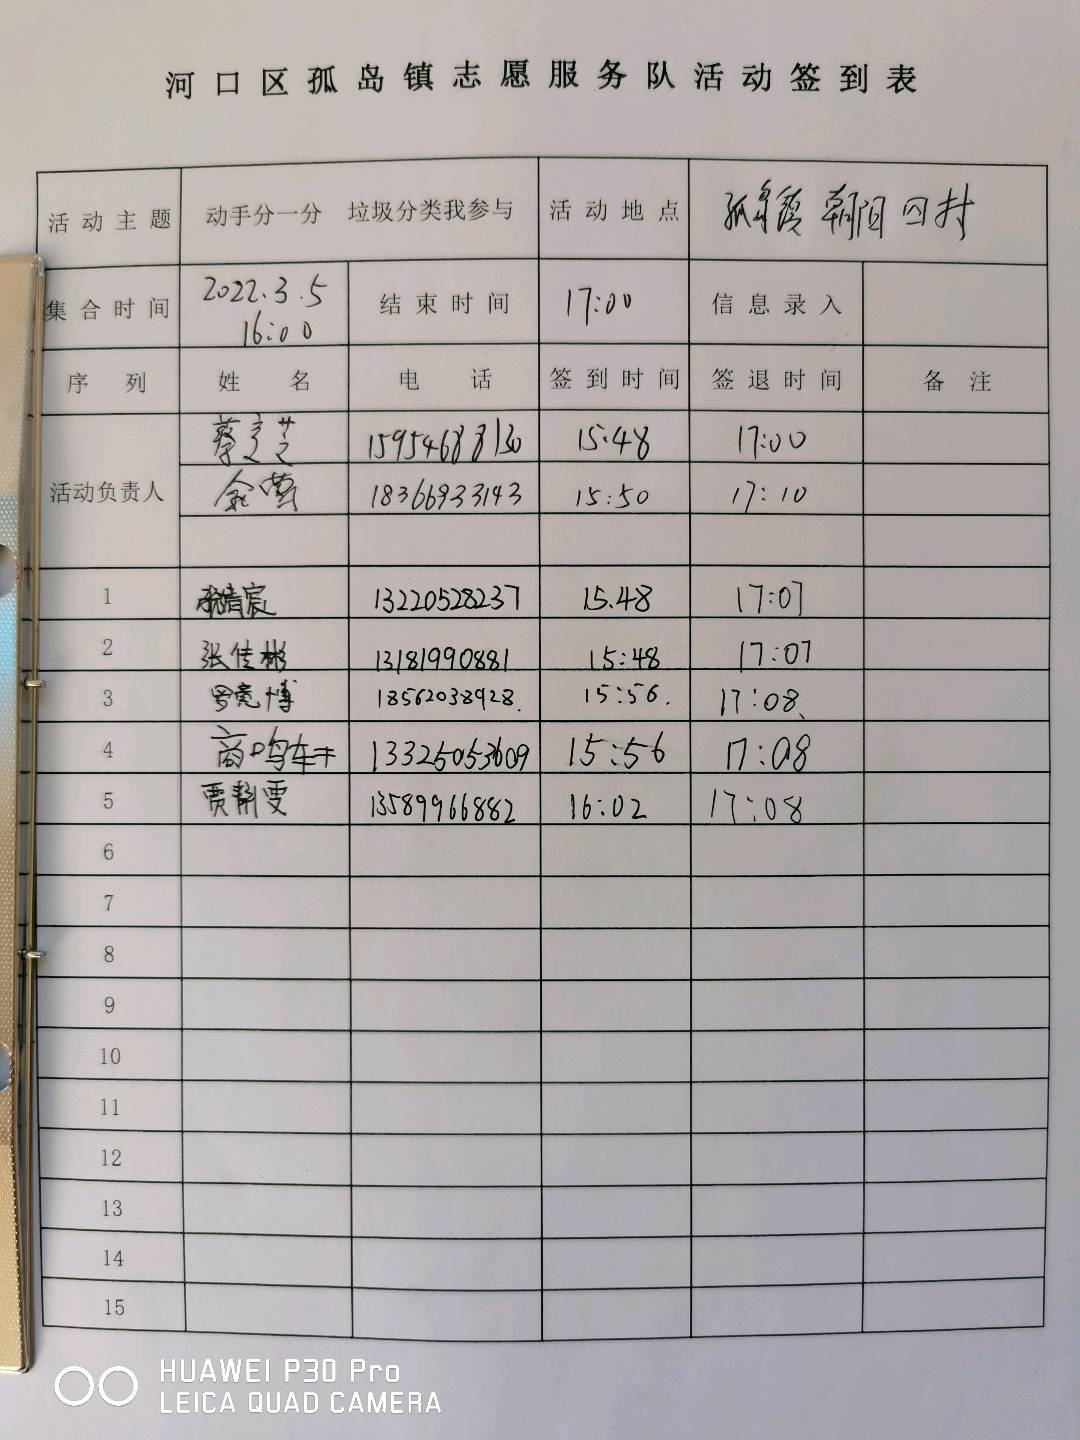 河口区孤岛镇志愿服务队活动签到表
活动主题 动手分一分 垃圾分类我参与 活动地点 孤岛镇 朝阳四村
集合时间 2022.3.5 16:00 结束时间 17:00 信息录入
序列 姓名 电话 签到时间 签退时间 备注
活动负责人
15954688130 15:48 17:00
18366933143 15:50 17:10
1 13220528237 15.48 17:07
2 张佳彬 13181990881 15:48 17:07
3 18562038928. 15:56. 17:08、
4 13325053609 15:56 17:08
5 贾静雯 13589966882 16:02 17:08
6
7
8
9
10
11
12
13
14
15
HUAWEI P30 Pro
LEICA QUAD CAMERA